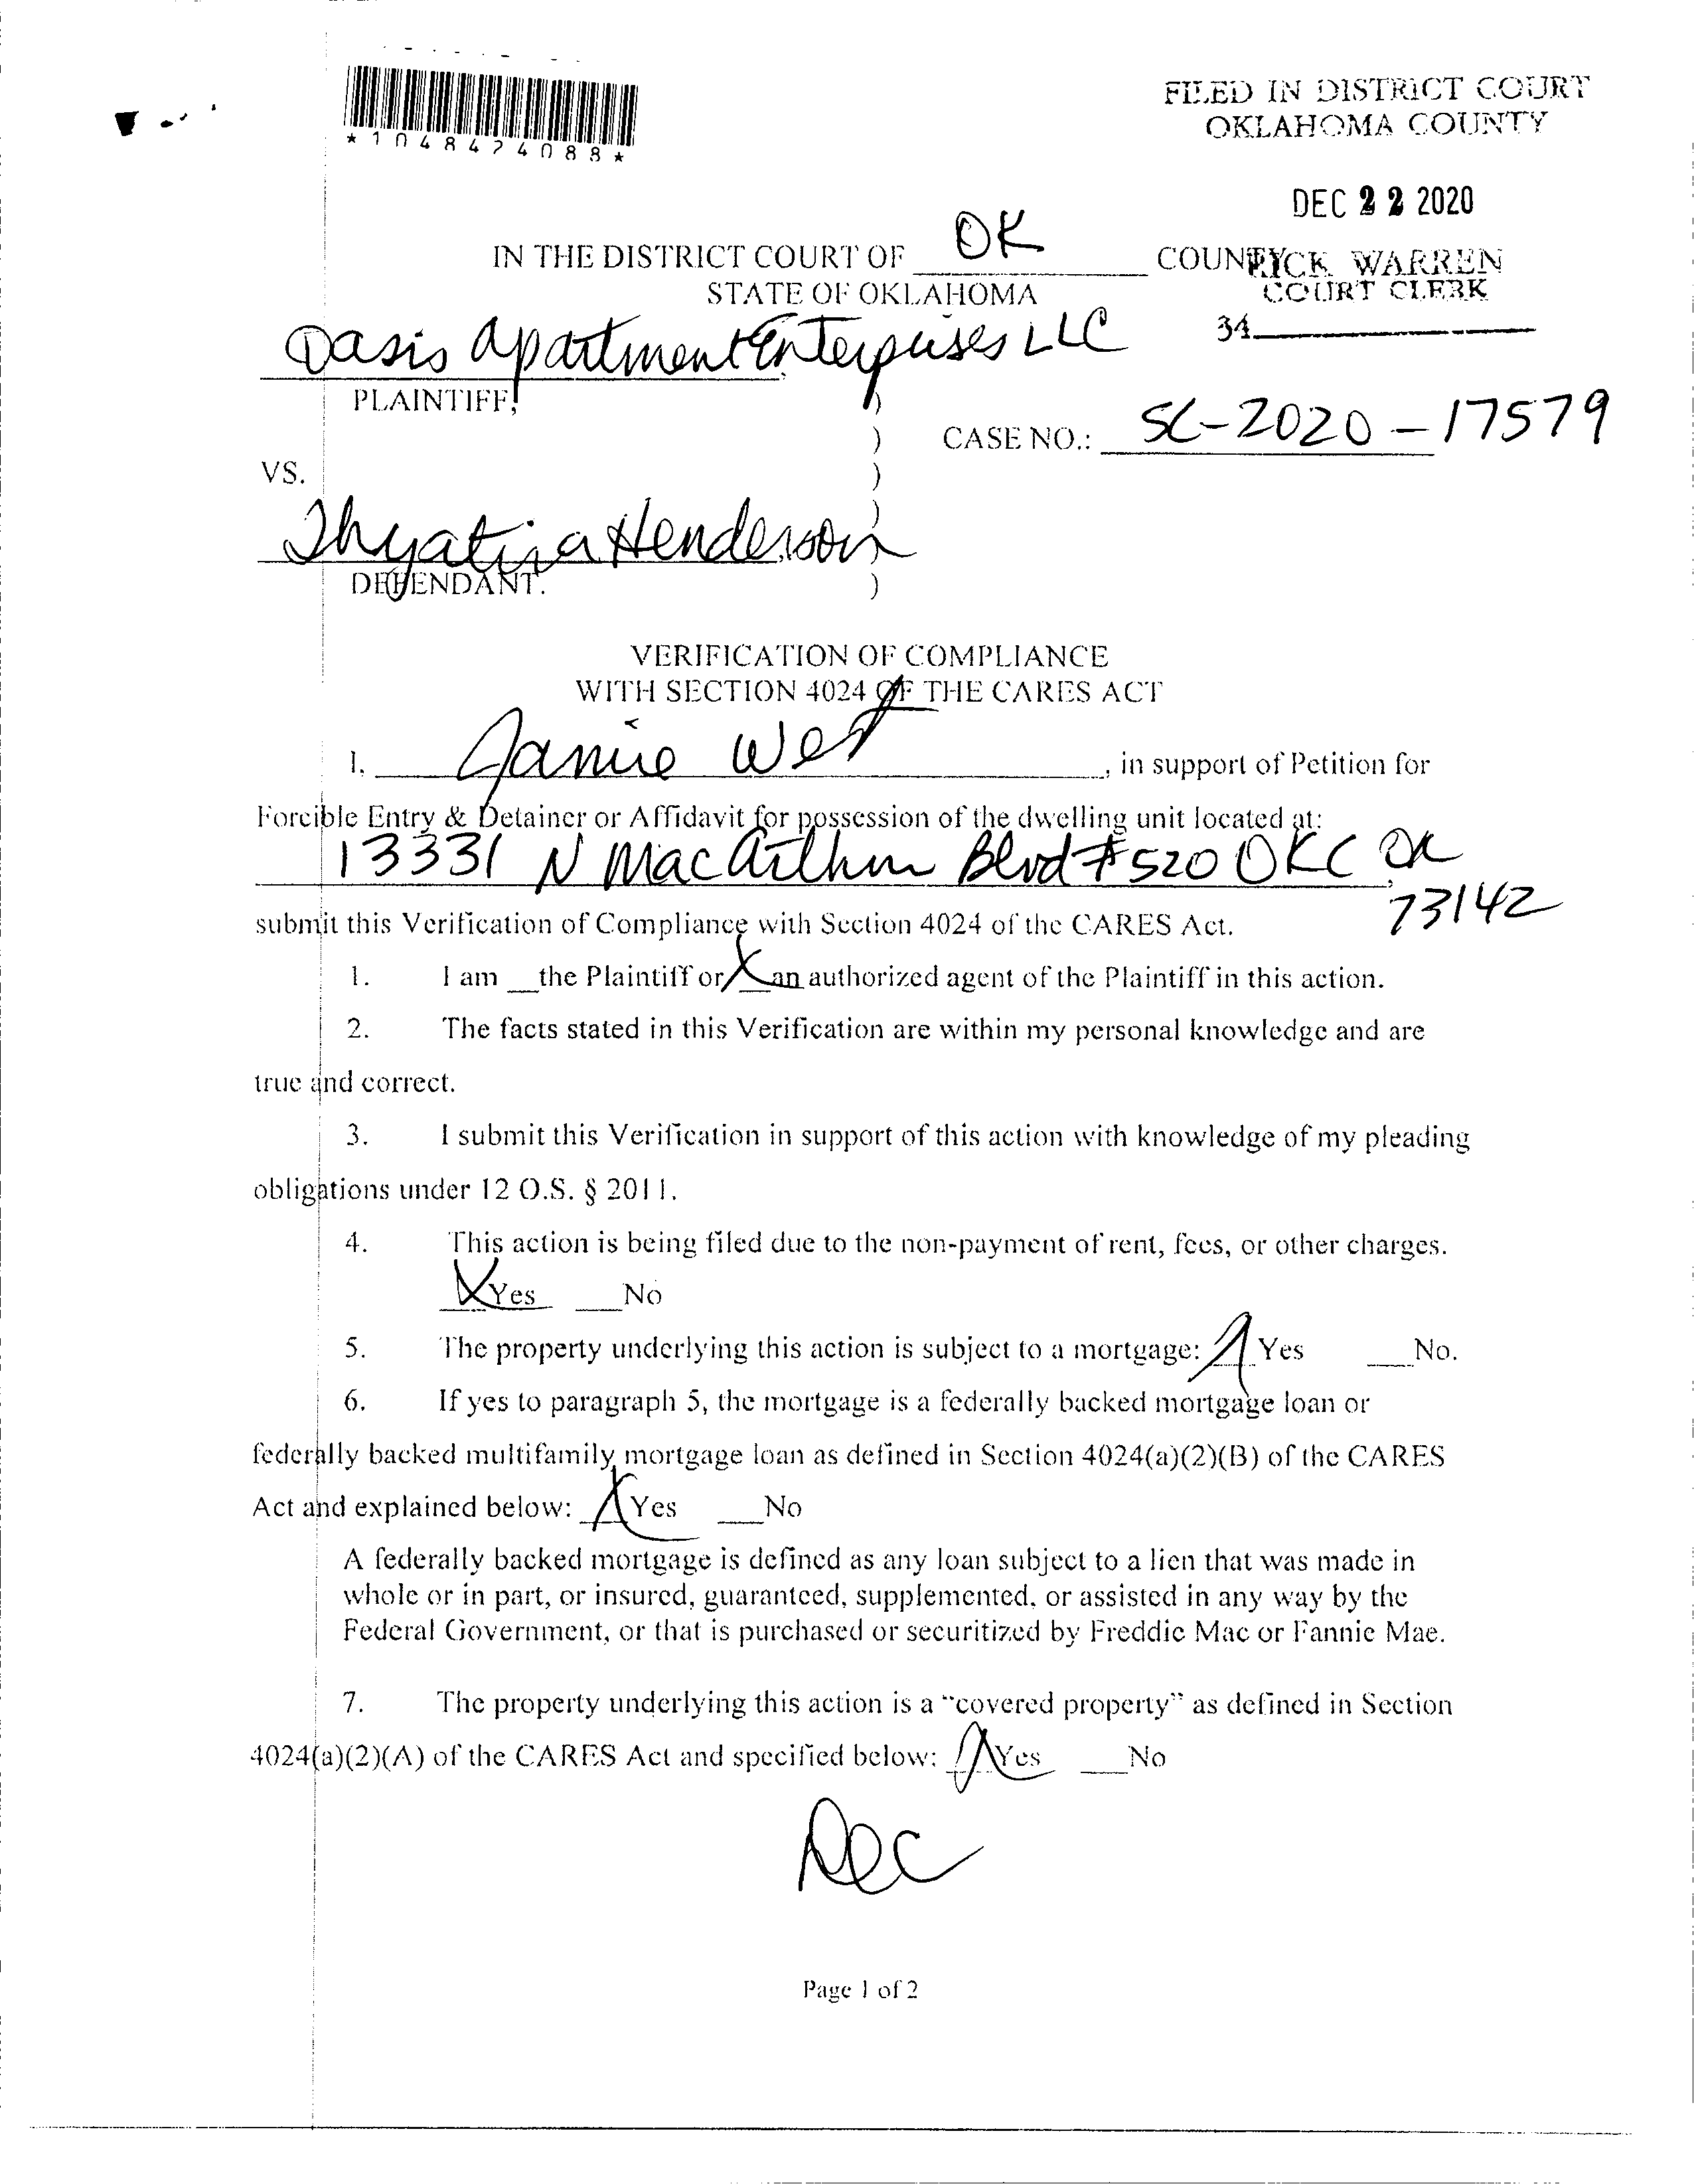 *1048424088*
FILED IN DISTRICT COURT
OKLAHOMA COUNTY
DEC 22 2020
RICK WARREN
COURT CLERK
34
IN THE DISTRICT COURT OF OK COUNTY
STATE OF OKLAHOMA
Oasis Apartment Enterprises LLC
PLAINTIFF,
)
)
CASE NO.: SC-2020-17579
VS.
)
)
Thyatira Henderson
DEFENDANT.
)
VERIFICATION OF COMPLIANCE
WITH SECTION 4024 OF THE CARES ACT
I, Jamie West, in support of Petition for
Forcible Entry & Detainer or Affidavit for possession of the dwelling unit located at:
13331 N MacArthur Blvd #520 OKC OK
73142
submit this Verification of Compliance with Section 4024 of the CARES Act.
1. I am __the Plaintiff or X an authorized agent of the Plaintiff in this action.
2. The facts stated in this Verification are within my personal knowledge and are
true and correct.
3. I submit this Verification in support of this action with knowledge of my pleading
obligations under 12 O.S. § 2011.
4. This action is being filed due to the non-payment of rent, fees, or other charges.
X Yes ___No
5. The property underlying this action is subject to a mortgage: X Yes ___No.
6. If yes to paragraph 5, the mortgage is a federally backed mortgage loan or
federally backed multifamily mortgage loan as defined in Section 4024(a)(2)(B) of the CARES
Act and explained below: X Yes ___No
A federally backed mortgage is defined as any loan subject to a lien that was made in
whole or in part, or insured, guaranteed, supplemented, or assisted in any way by the
Federal Government, or that is purchased or securitized by Freddie Mac or Fannie Mae.
7. The property underlying this action is a "covered property" as defined in Section
4024(a)(2)(A) of the CARES Act and specified below: X Yes ___No
Dec
Page 1 of 2